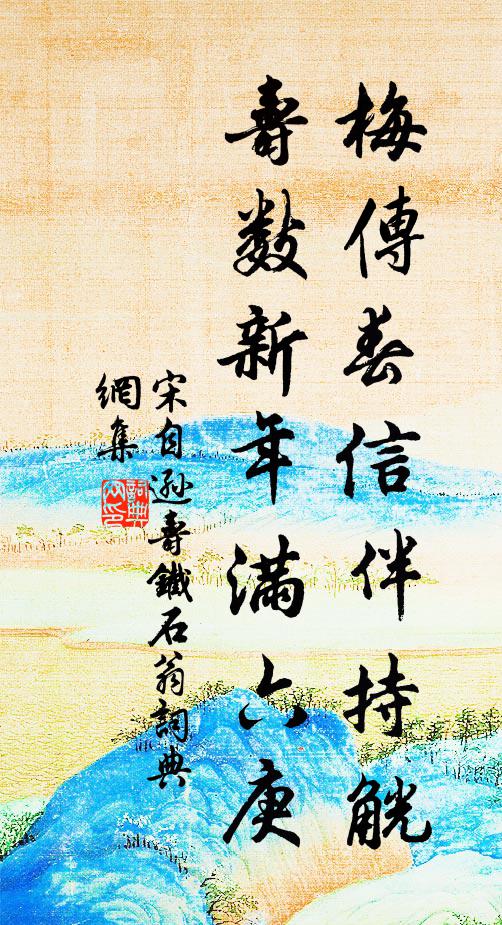 梅傳春信伴持觥
壽數新年滿六庚
宋自遜壽鐵石翁詞典
網集
詞典